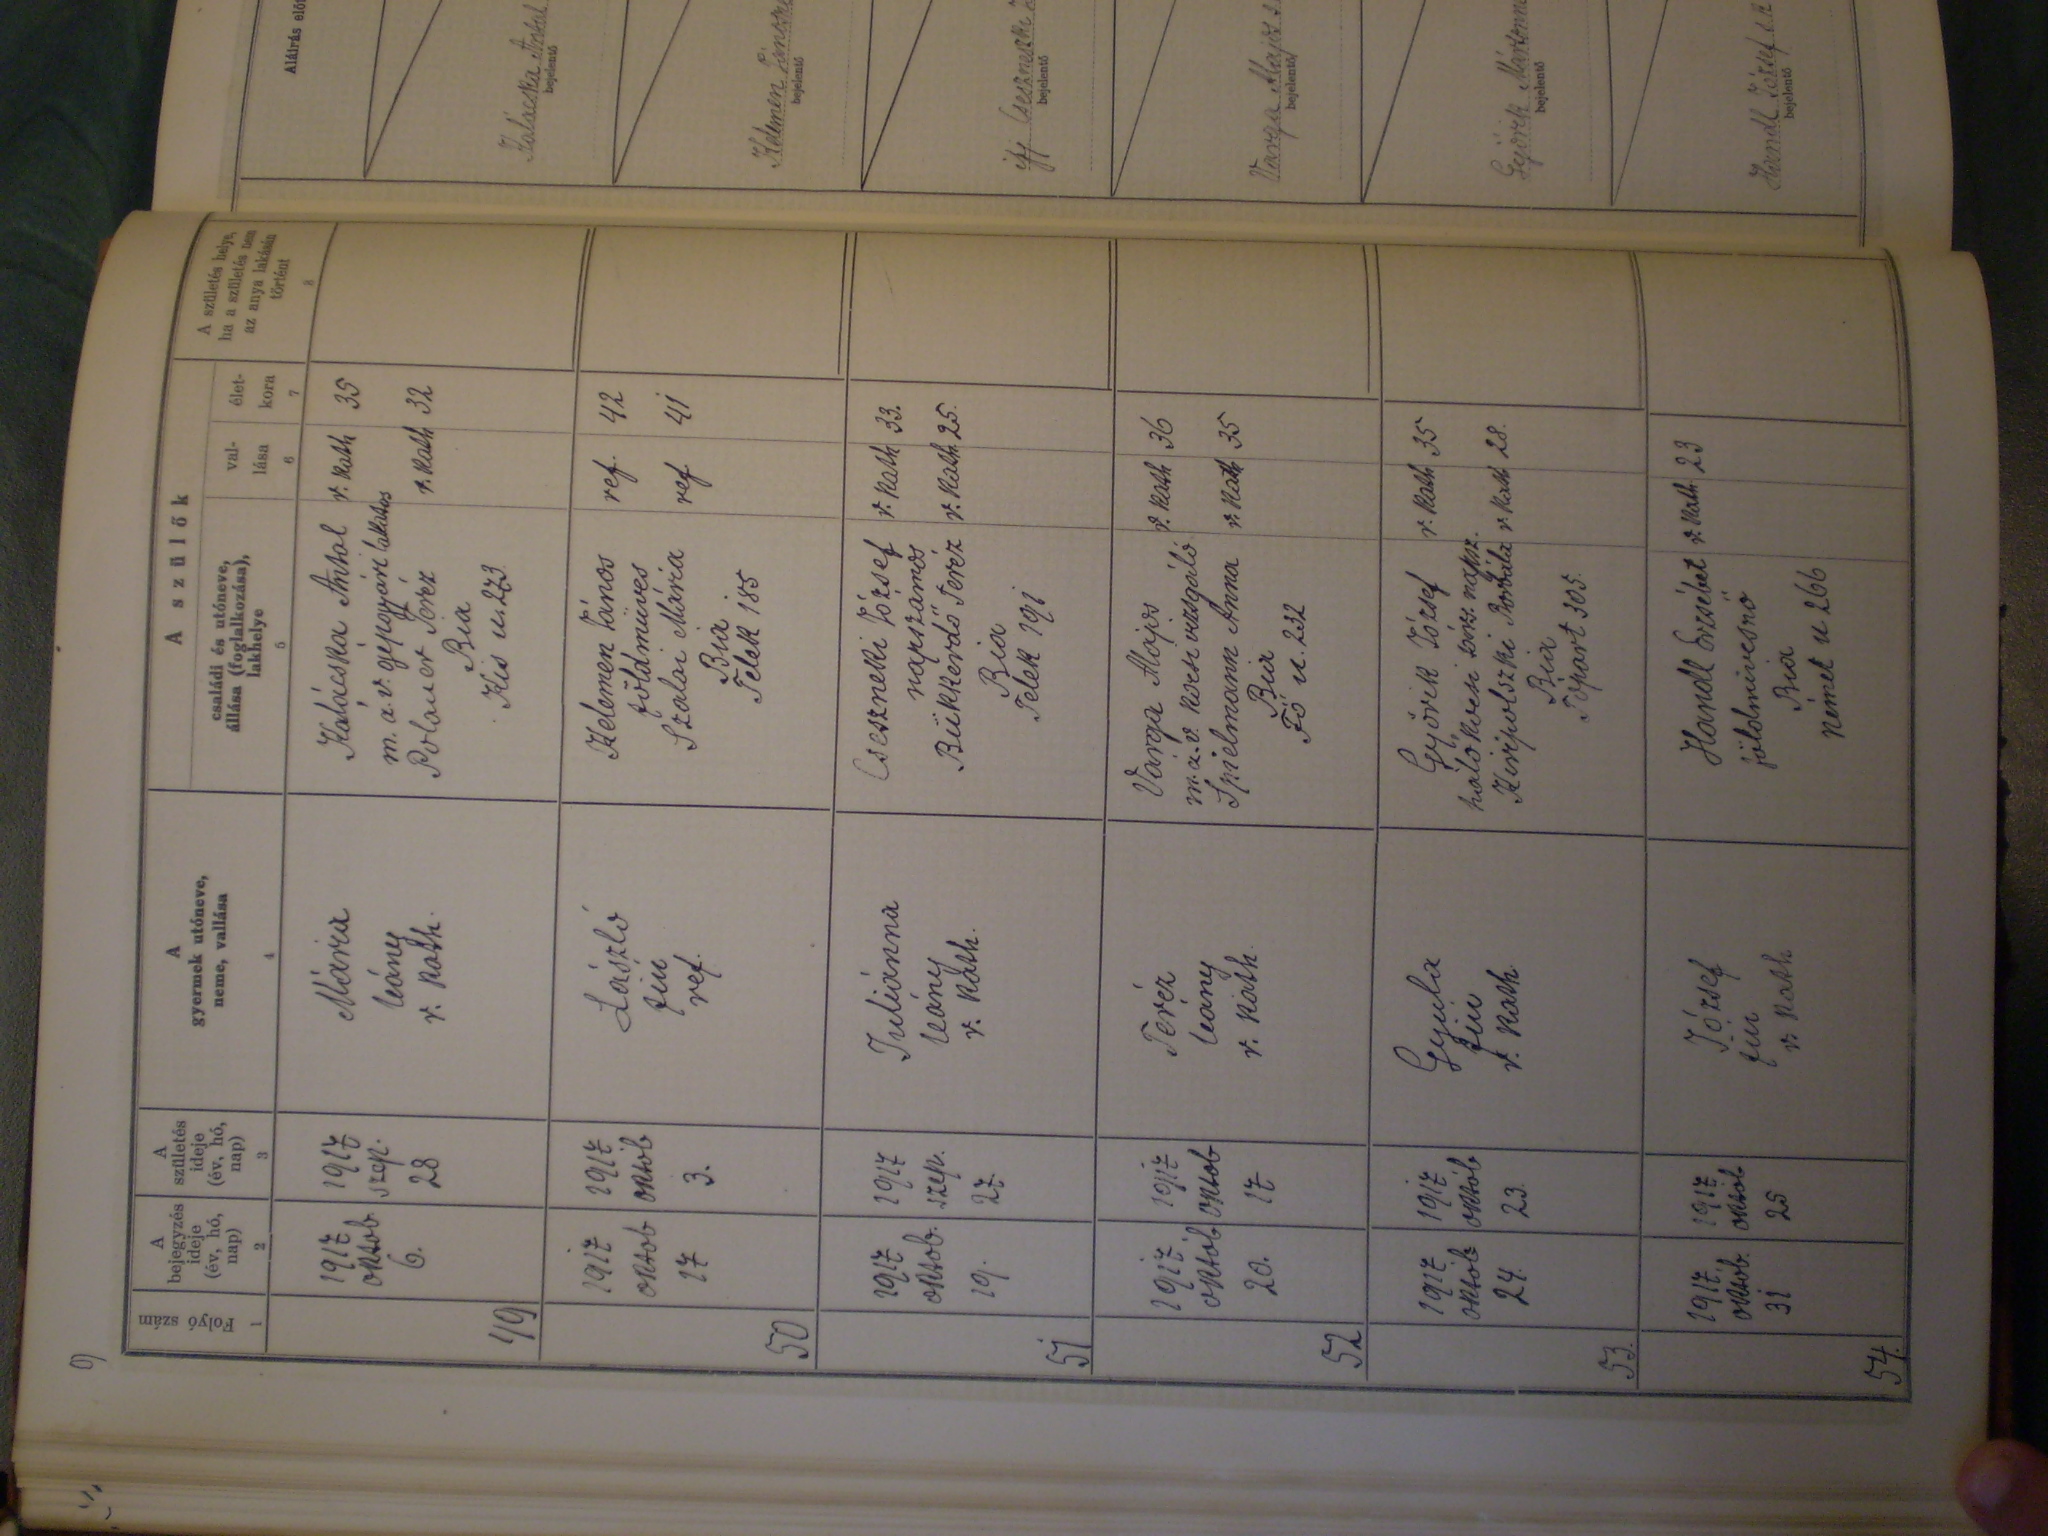 9)
A szülők
Folyó szám
A bejegyzés ideje (év, hó, nap)
A születés ideje (év, hó, nap)
A gyermek utóneve, neme, vallása
családi és utóneve, állása (foglalkozása), lakhelye
val-lása
élet-kora
A születés helye, ha a születés nem az anya lakásán történt
1 2 3 4 5 6 7 8
49
1917 oktob 6.
1917 szep. 28
Mária
leány
r. kath.
Kalácska Antal r. kath 35
m. á. v. gépgyári lakatos
Teréz r. kath 32
Bia
Kis u. 273
50
1917 oktob 17
1917 oktob 3.
László
fiu
ref.
Kelemen János ref. 42
földmüves
Szalai Mária ref 41
Bia
Telek 185
51
1917 oktob. 19.
1917 szep. 27
Julianna
leány
r. kath.
Cseszneki József r. kath 33.
napszámos
Bükkerdő Teréz r. kath 25.
Bia
Telek 191
52
1917 oktob 20.
1917 oktob 17
Teréz
leány
r. kath.
Varga Alajos r. kath 36
m. a. v. kocsi vizsgáló
Spielmann Anna r. kath 35
Bia
Fő u. 232
53.
1917 oktob 24.
1917 oktob 23.
Gyula
fiu
r. kath.
József r. kath 35
hálókocsi
Borbála r. kath 28.
Bia
Tópart 305.
54.
1917. oktob. 31
1917. oktob 25
József
fiu
r. kath
Handl Erzsébet r. kath 23
földmivesnő
Bia
német u 266
Aláírás előtt
Kalácska Antal
bejelentő
Kelemen János
bejelentő
ifj Cseszneki
bejelentő
Varga Alajos
bejelentő
Mártonné
bejelentő
Handl József
bejelentő